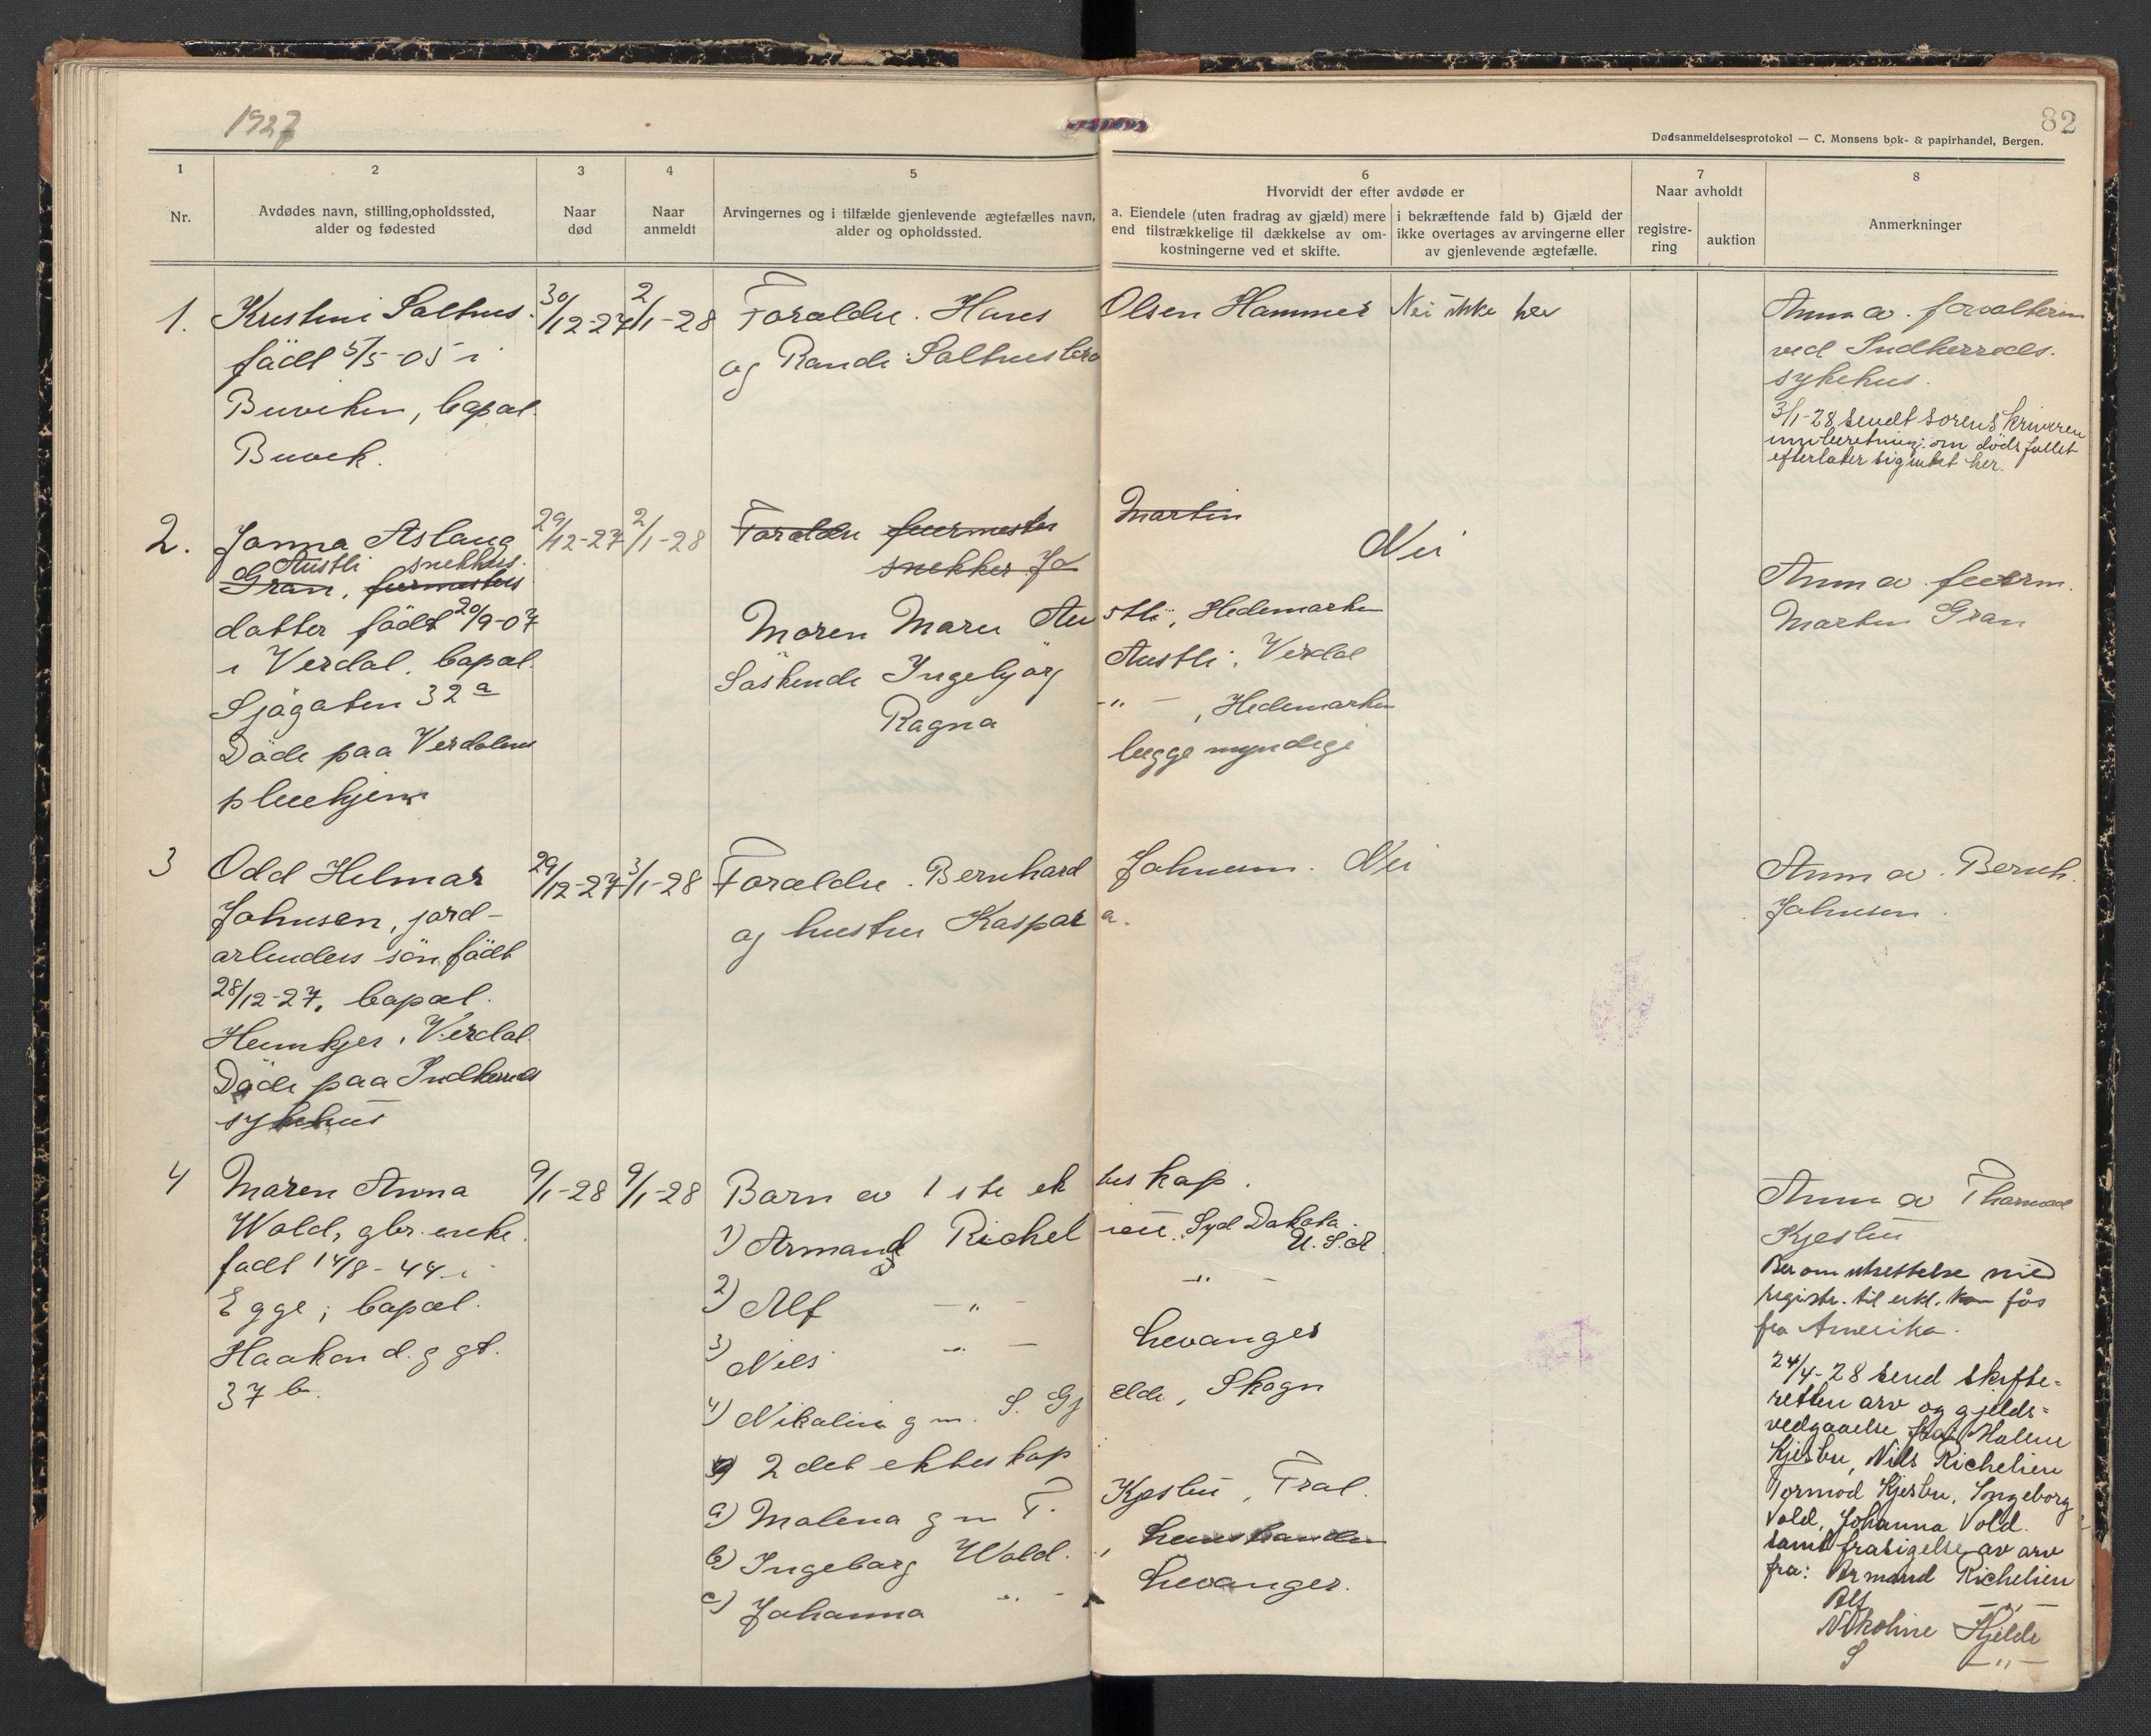 1927
82
Dødsanmeldelsesprotokol — C. Monsens bok- & papirhandel, Bergen.
1
Nr.
2
Avdødes navn, stilling, opholdssted,
alder og fødested
3
Naar
død
4
Naar
anmeldt
5
Arvingernes og i tilfælde gjenlevende ægtefælles navn,
alder og opholdssted.
6
Hvorvidt der efter avdøde er
a. Eiendele (uten fradrag av gjæld) mere
end tilstrækkelige til dækkelse av om-
kostningerne ved et skifte.
i bekræftende fald b) Gjæld der
ikke overtages av arvingerne eller
av gjenlevende ægtefælle.
7
Naar avholdt
registre-
ring
auktion
8
Anmerkninger
1. Kristine Salthus.
födt 5/5-05 i
Buviken, bopæl
Buvik.
30/12-27
2/1-28
Forældre. Hans Olsen Hammer
og Randi Salthus
Nei ikke her
Anm av. forvalteren
ved Indherreds.
sykehus.
3/1-28 sendt sorenskriveren
innberetning om dödsfallet
efterlater sig intet her.
2. Jonna Aslaug
Austli snekkers.
Gran, feiermesters
datter födt 20/9-07
i Verdal. bopæl.
Sjögaten 32a
Döde paa Verdalens
pleiehjem
29/12-27
2/1-28
Forældre feiermester Martin
snekker Jo
Moren Maren Austli, Hedemarken
Söskende Ingebjörg Austli, Verdal
Ragna -"- , Hedemarken
begge myndige
Nei
Anm av feierm.
Martin Gran
3 Odd Hilmar
Johnsen, jord-
arbeiders sön, födt
28/12-27, bopæl.
Verdal.
Döde paa Indherreds
sykehus
29/12-27
3/1-28
Forældre. Bernhard Johnsen.
og hustru Kaspara.
Nei
Anm av. Bernh.
Johnsen.
4 Maren Anna
Wold, gbr. enke.
födt 14/8-44 i
Egge, bopæl.
Haakon d. g gt.
37 b.
9/1-28
9/1-28
Barn av 1ste ekteskap.
1) Armand Richelieu. Syd Dakota.
U.S.A
2) Alf -"- -"-
3) Nils -"- Levanger
4) Nikoline g m. S. Gjelde, Skogn
2det ekteskap
a) Malena g m T. Kjesbu, Frol.
b) Ingeborg Wold.,
c) Johanna -"- Levanger.
Anm av Thormod
Kjesbu
Ber om utsettelse med
registr. til erkl. kan fås
fra Amerika.
24/4-28 send skifte=
retten arv og gjelds=
vedgaaelse fra Malene
Kjesbu, Nils Richelieu
Tormod Kjesbu, Ingeborg
Vold, Johanna Vold.
samt frasigelse av arv
fra: Armand Richelieu
Alf -"-
Nikoline Hjelde
S -"-